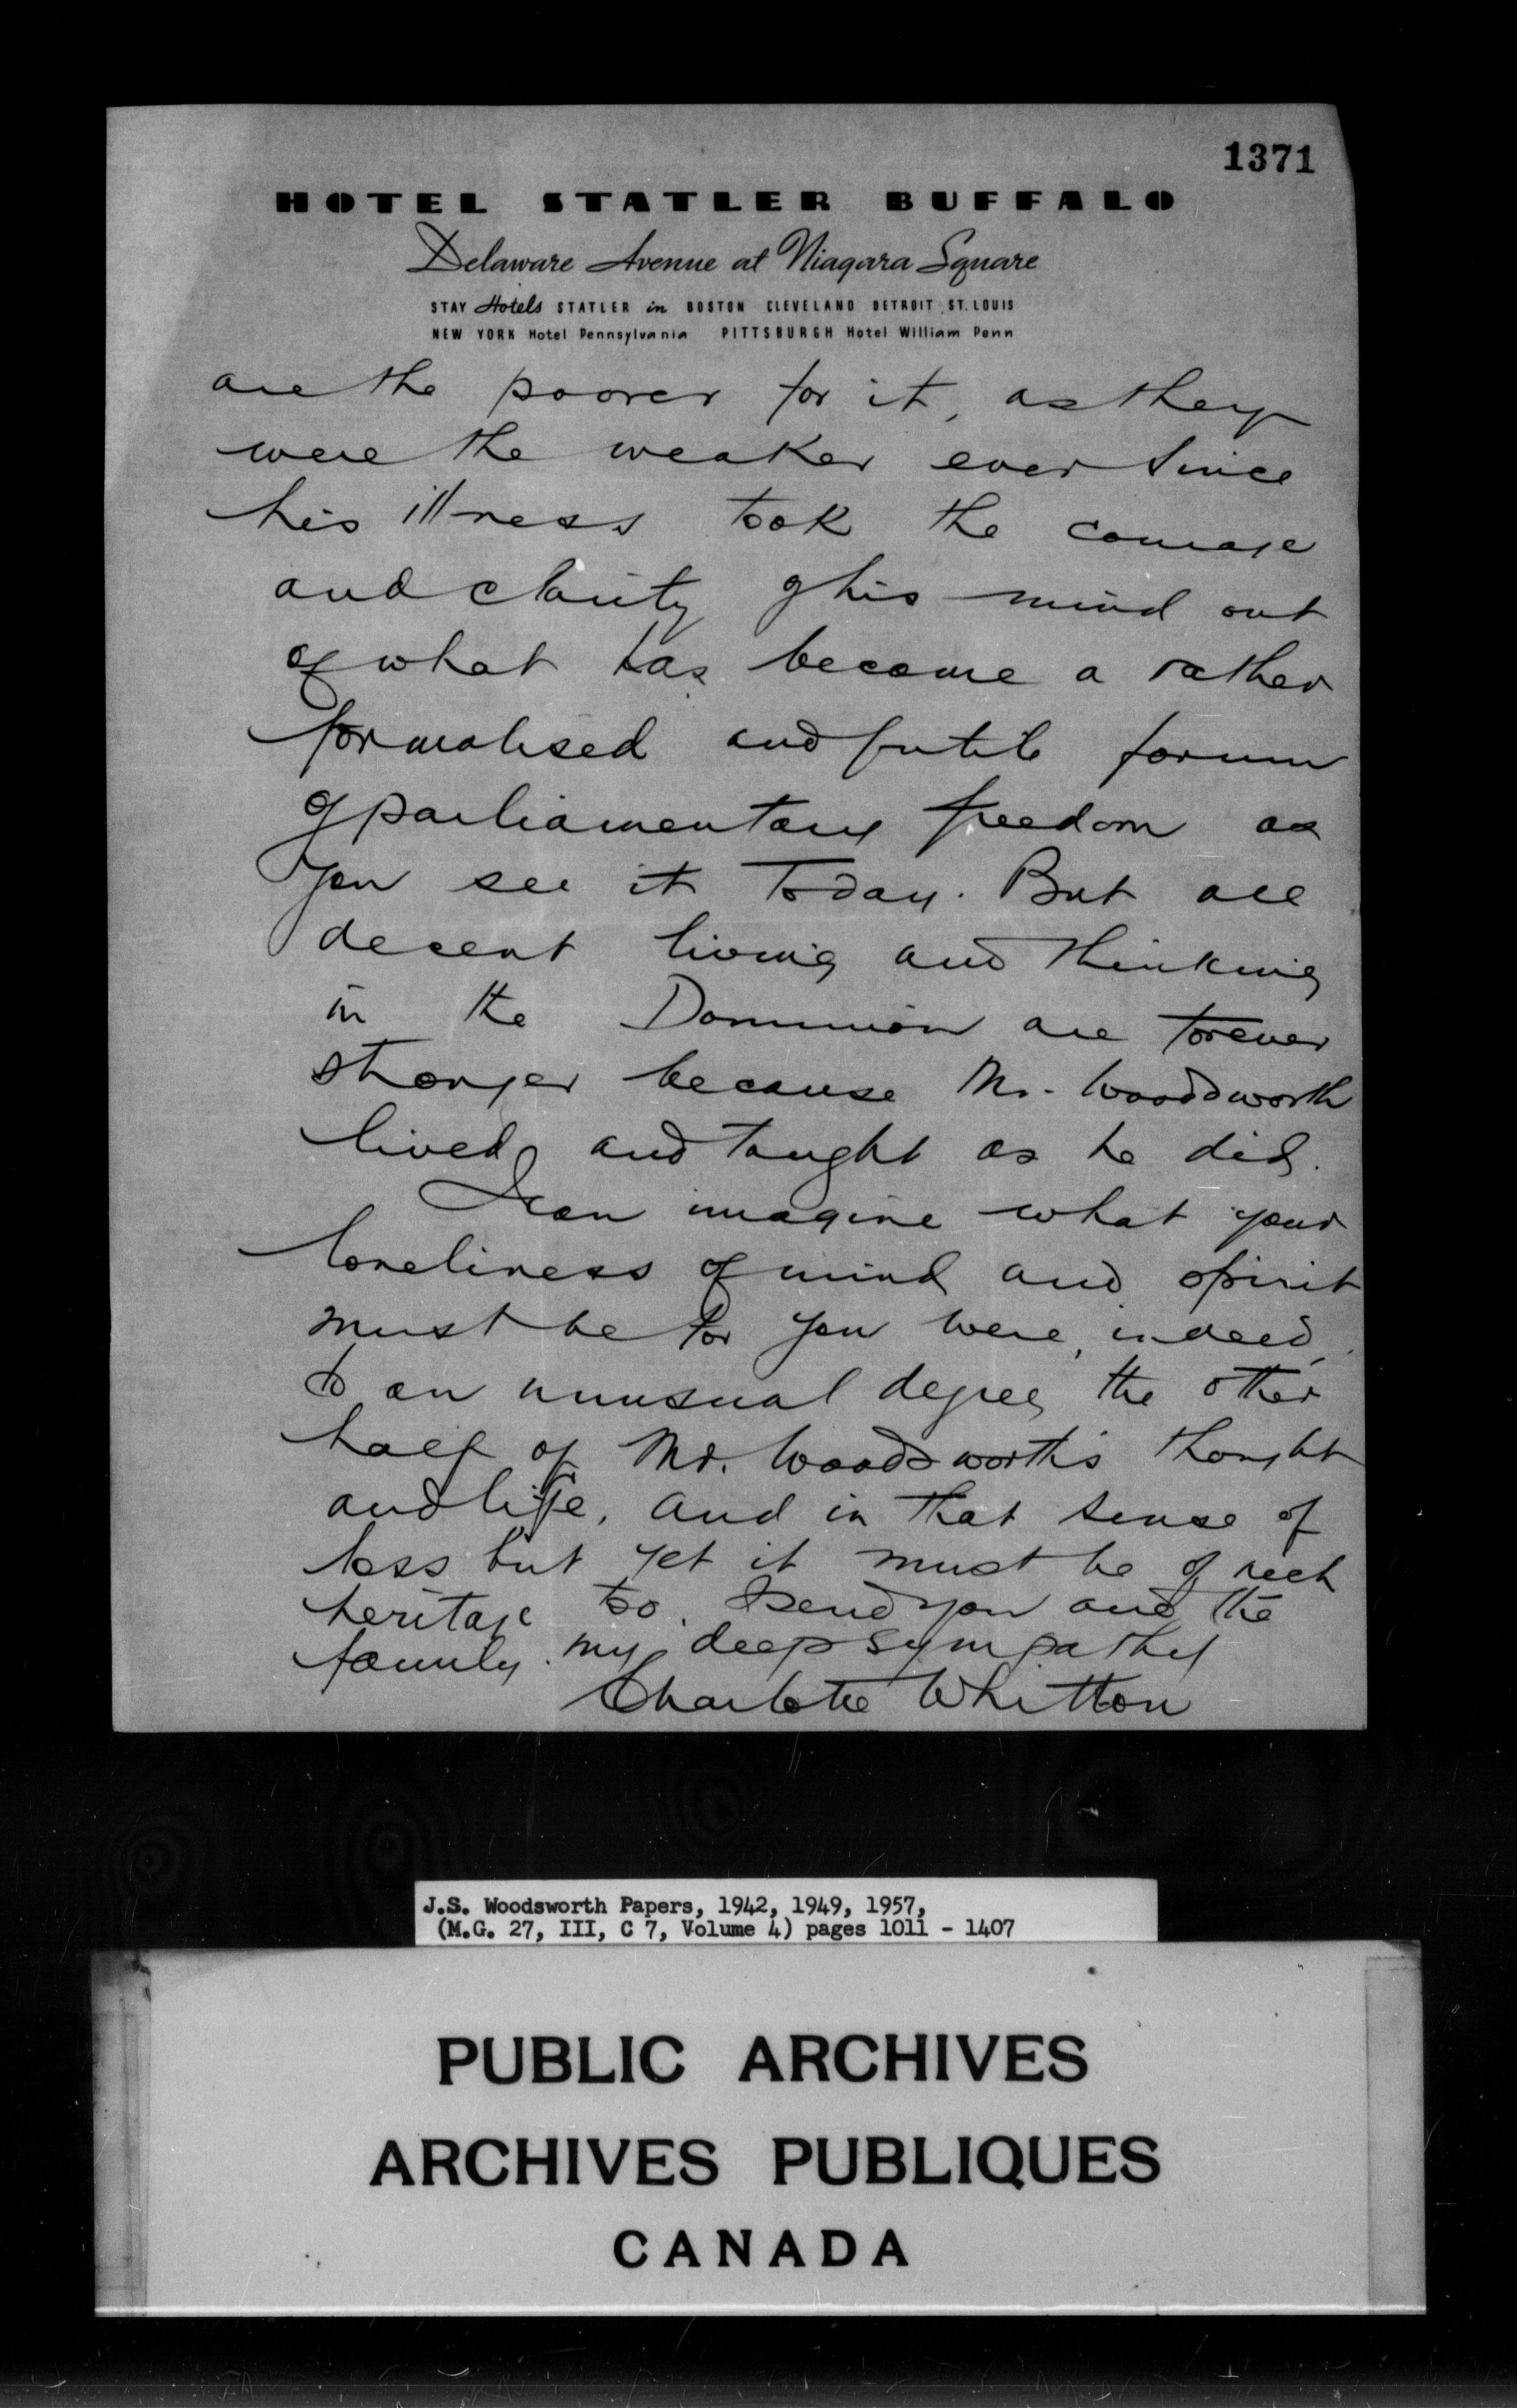 1371
HOTEL STATLER BUFFALO
Delaware Avenue at Niagara Square
STAY Hotels STATLER in BOSTON CLEVELAND DETROIT ST. LOUIS
NEW YORK Hotel Pennsylvania PITTSBURGH Hotel William Penn
are the poorer for it, as they
were the weaker ever since
his illness took the courage
and clarity of his mind out
of what has become a rather
formalised and futile forum
of parliamentary freedom as
you see it today. But all
decent living and thinking
in the Dominion are forever
stronger because Mr. Woodsworth
lived and taught as he did.
I can imagine what your
loneliness of mind and spirit
must be for you were, indeed,
to an unusual degree, the other
half of Mr. Woodsworth's thought
and life. And in that sense of
loss but yet it must be of rich
heritage too. I send you and the
family my deep sympathy
Charlotte Whitton
J.S. Woodsworth Papers, 1942, 1949, 1957,
(M.G. 27, III, C 7, Volume 4) pages 1011 - 1407
PUBLIC ARCHIVES
ARCHIVES PUBLIQUES
CANADA